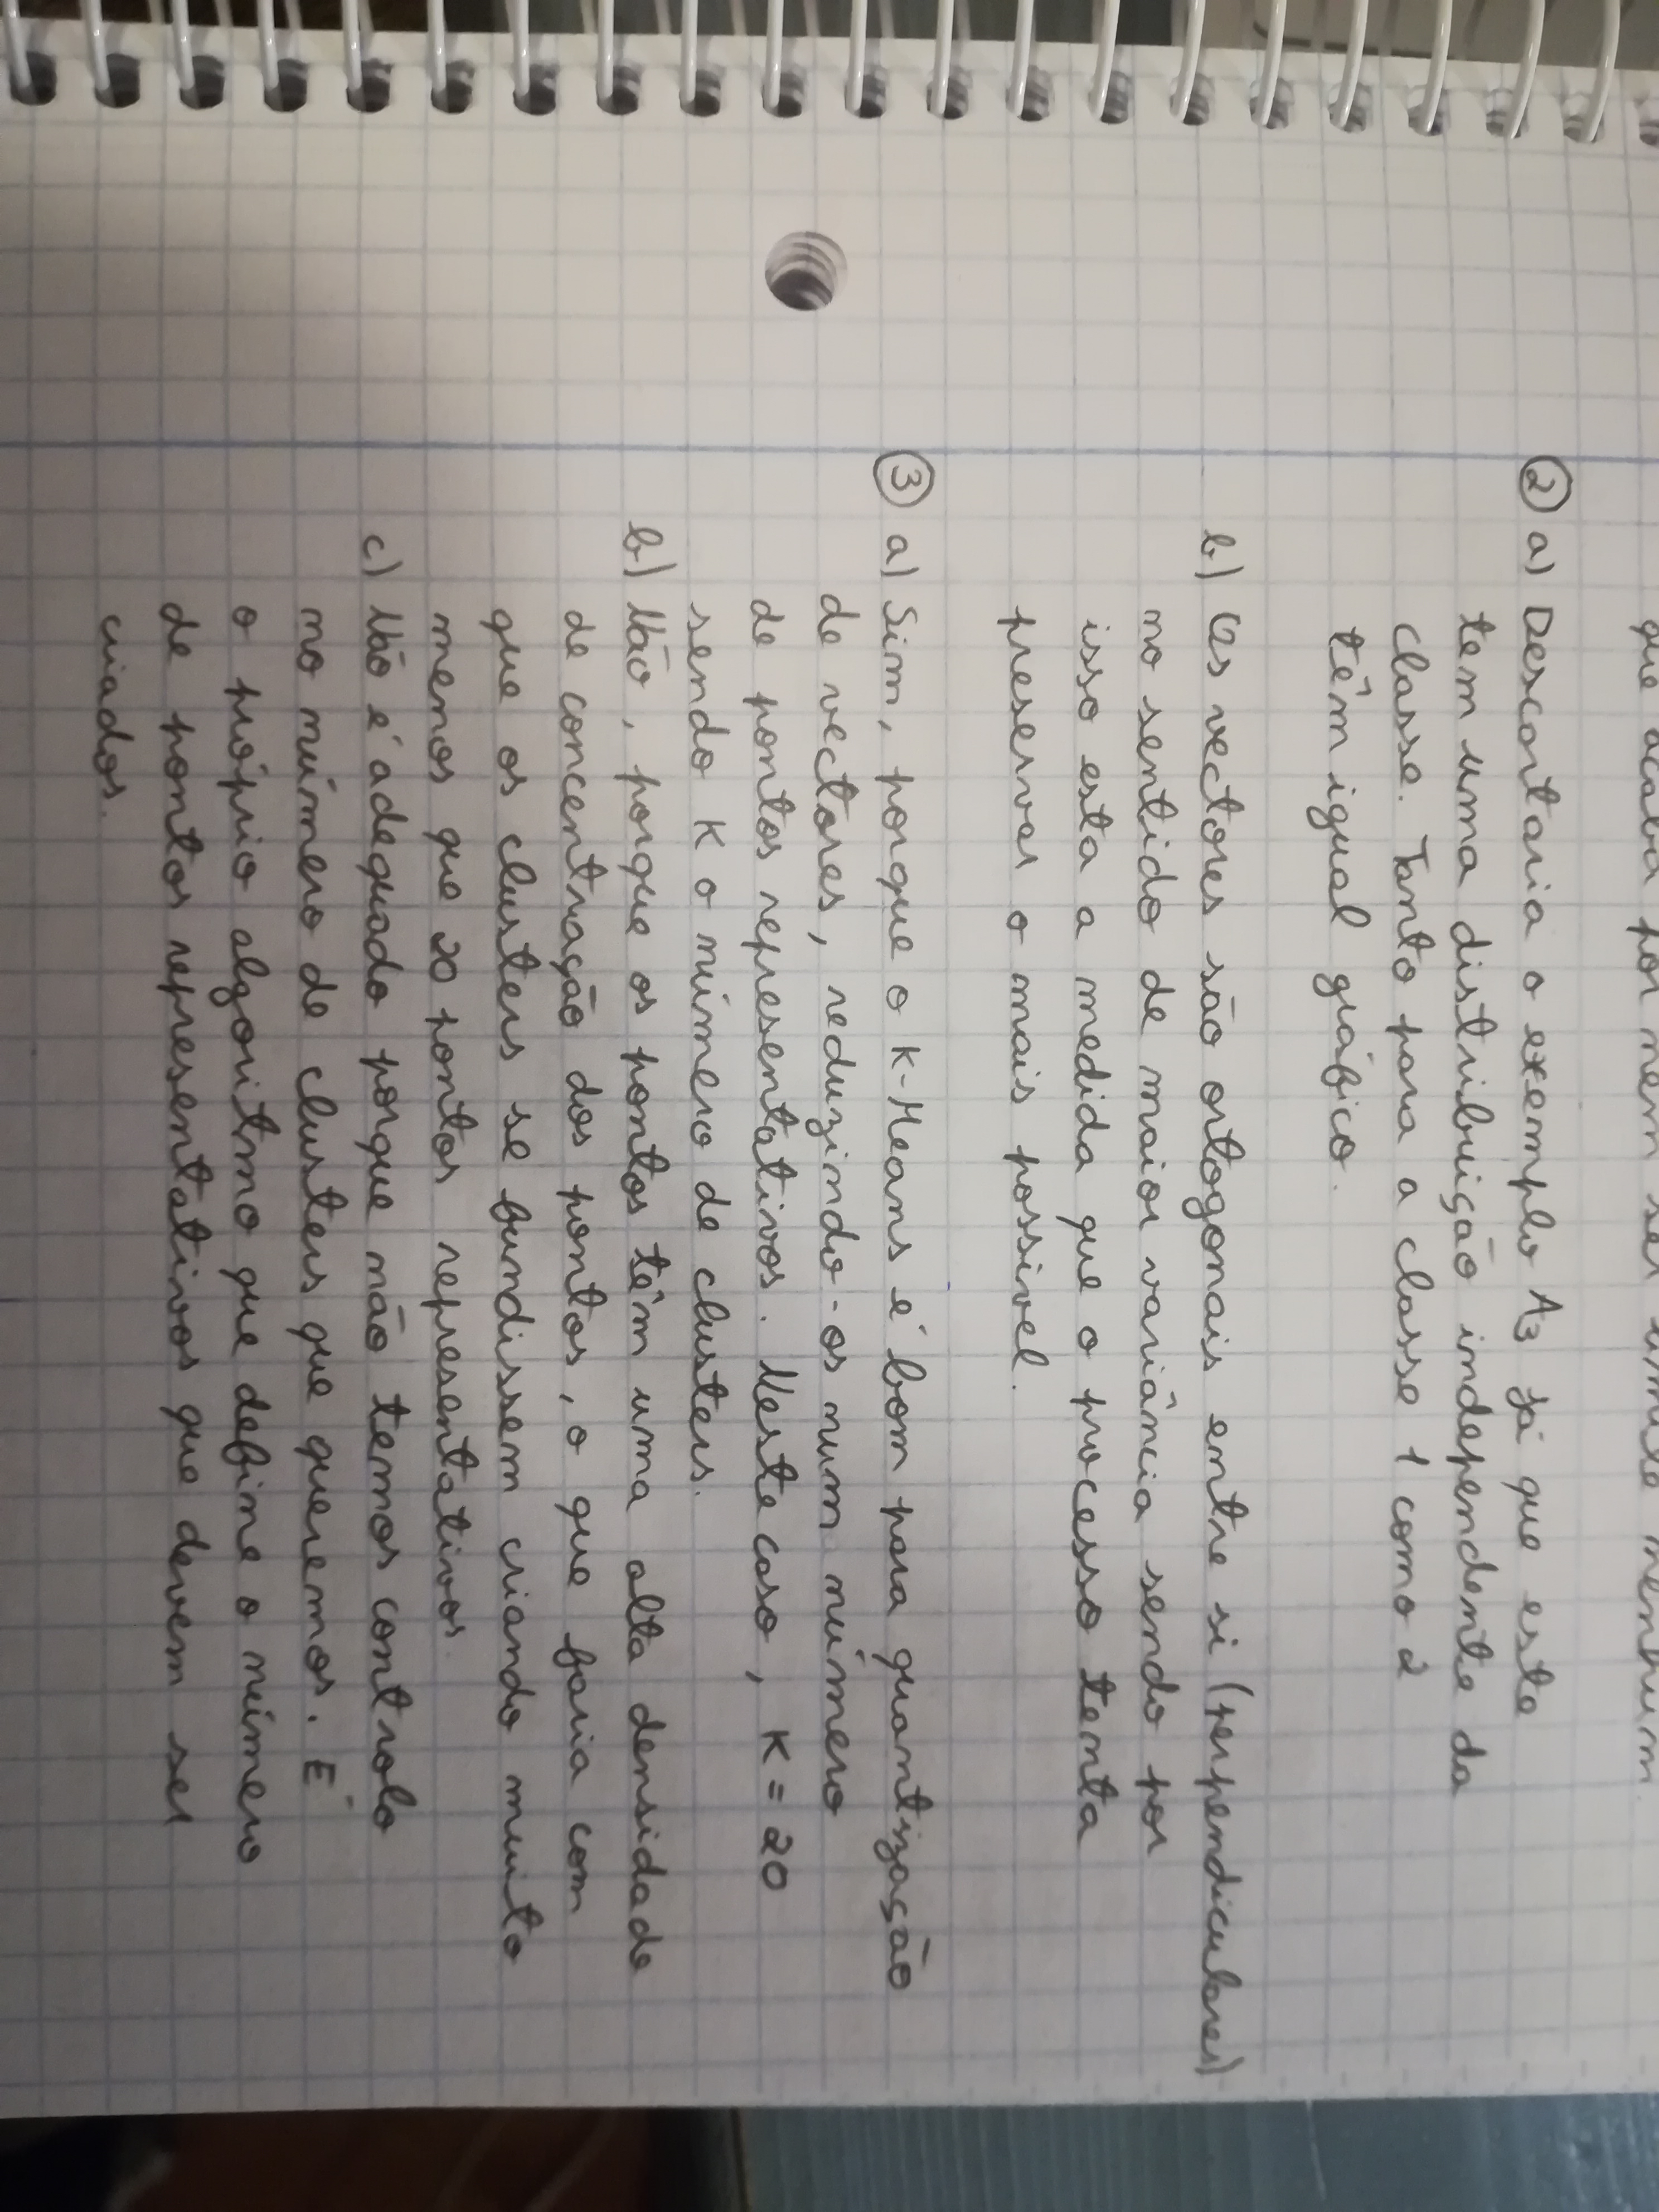 que acaba por nem ser
② a) Descartaria o exemplo A3 já que este
tem uma distribuição independente da
classe. Tanto para a classe 1 como 2
têm igual gráfico.
b) Os vectores são ortogonais entre si (perpendiculares)
no sentido de maior variância sendo por
isso esta a medida que o processo tenta
preservar o mais possivel.
③ a) Sim, porque o K-Means é bom para quantização
de vectores, reduzindo-os num número
de pontos representativos. Neste caso, K = 20
sendo K o número de clusters.
b) Não, porque os pontos têm uma alta densidade
de concentração dos pontos, o que faria com
que os clusters se fundissem criando muito
menos que 20 pontos representativos.
c) Não é adequado porque não temos controlo
no número de clusters que queremos. É
o próprio algoritmo que define o número
de pontos representativos que devem ser
criados.